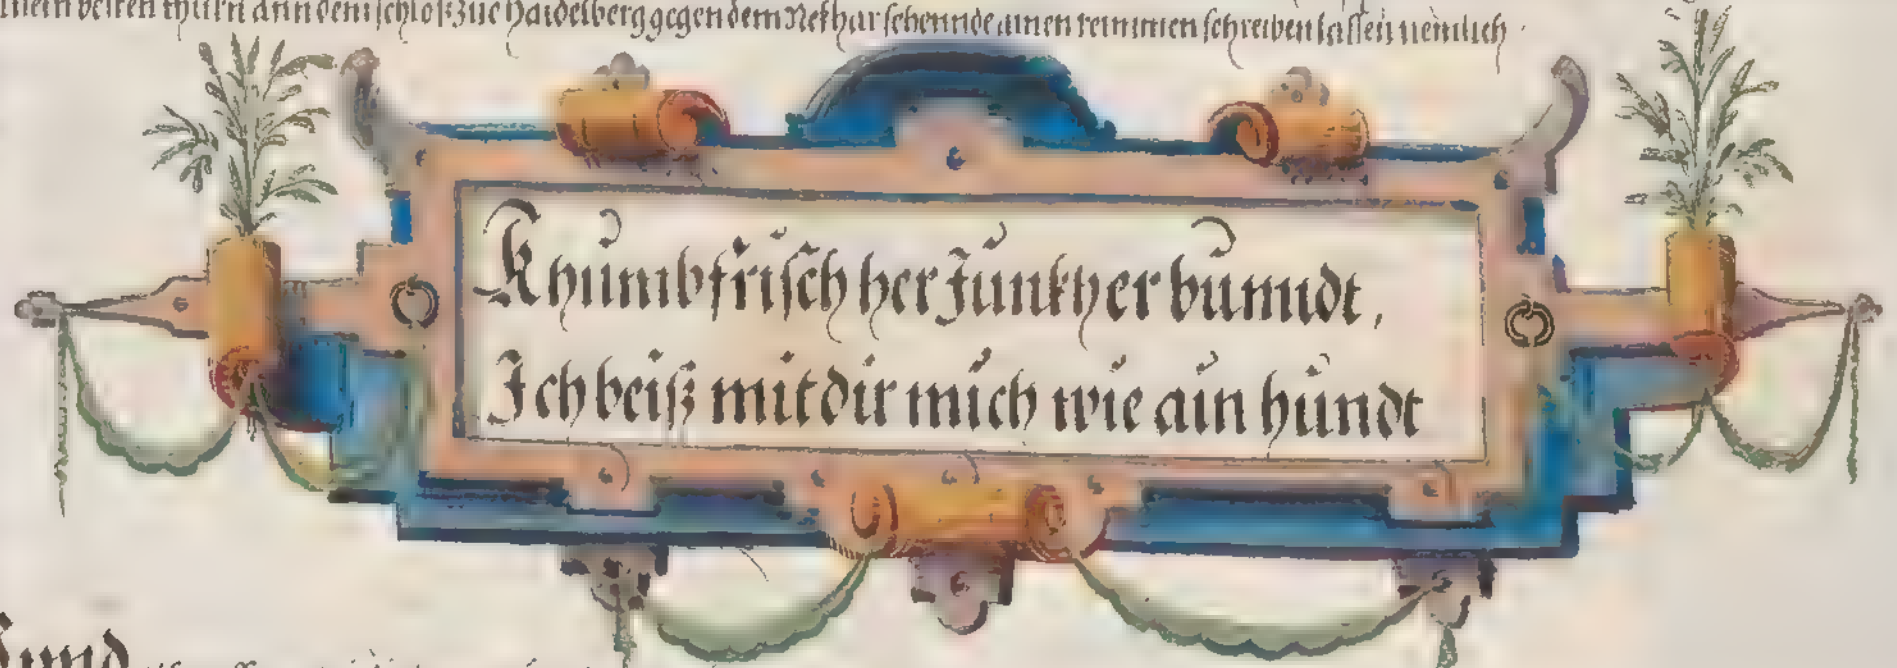 vesten thurn ann dem schloß zue Haidelberg gegen dem Nekhar sehennde ainen reimmen schreiben lassen nemlich
Khumb frisch her Junkher bunndt,
Ich beiß mit dir mich wie ain hundt